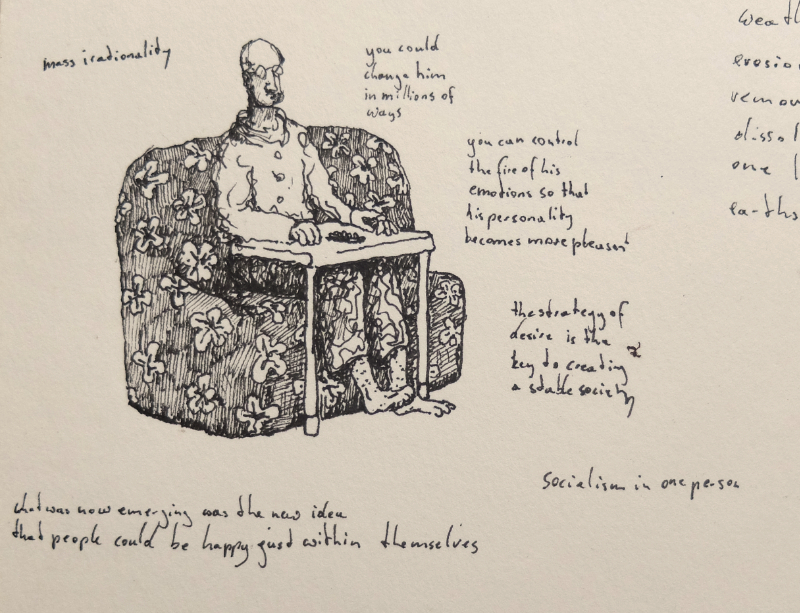 mass irrationality
you could
change him
in millions of
ways
you can control
the fire of his
emotions so that
his personality
becomes more pleasent
the strategy of
desire is the
key to creating
a stable society
Socialism in one person
what was now emerging was the new idea
that people could be happy just within themselves
one